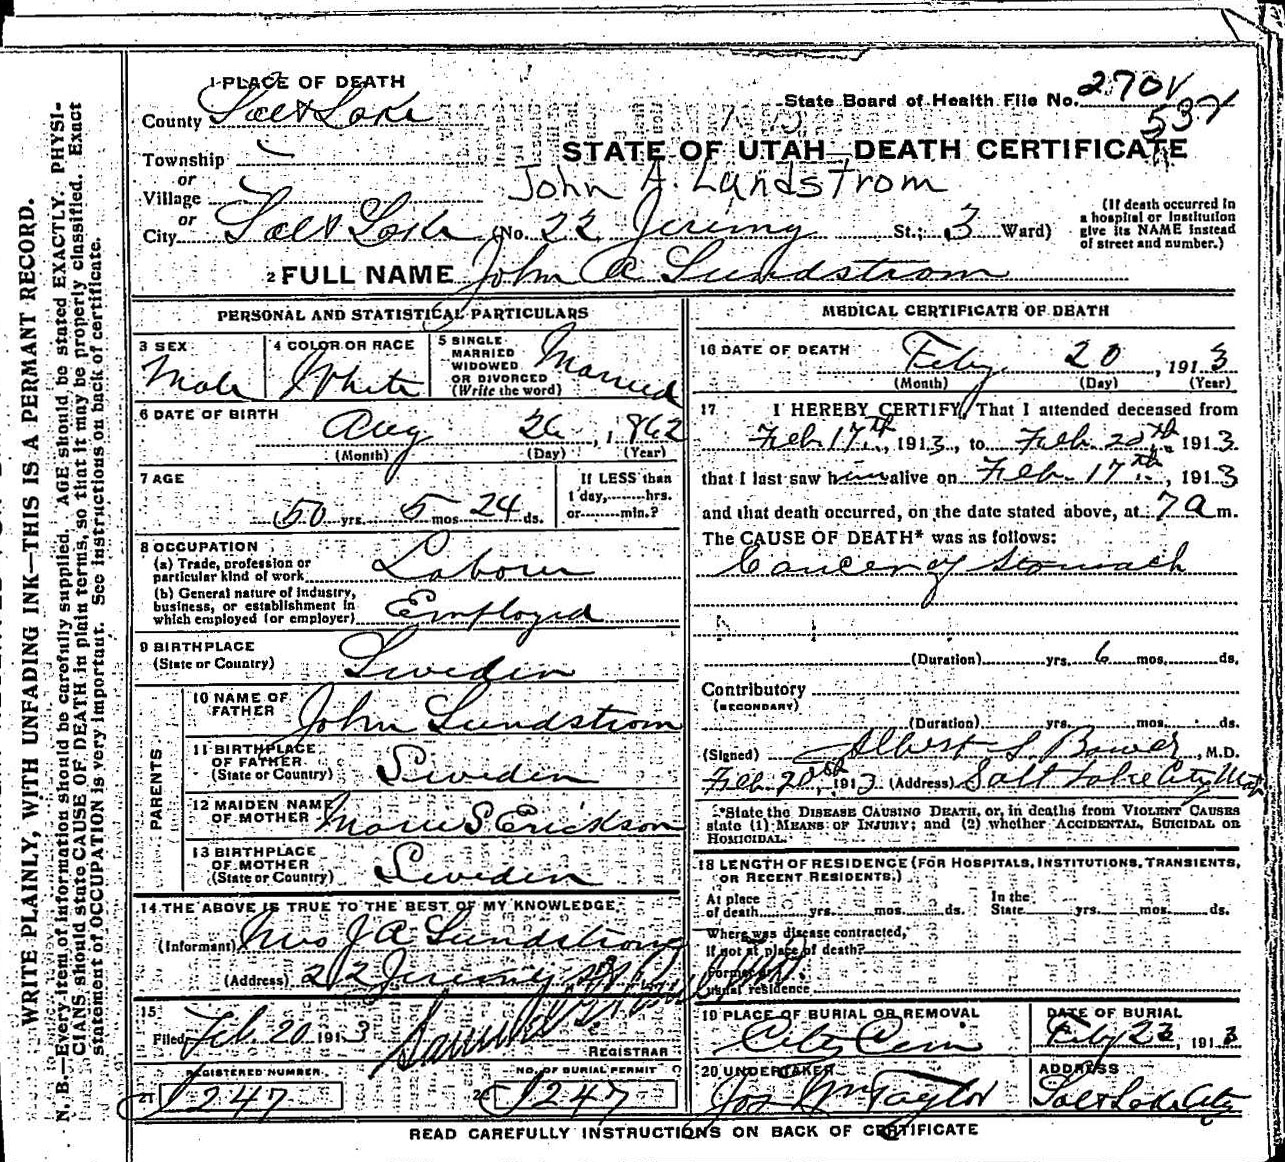 1 PLACE OF DEATH
County Salt Lake
State Board of Health File No. 270V
537
STATE OF UTAH—DEATH CERTIFICATE
Township
or
Village
or
John A. Lundstrom
City Salt Lake (No. 22 Jeremy St.; 3 Ward)
(If death occurred in
a hospital or institution
give its NAME instead
of street and number.)
2 FULL NAME John A Lundstrom
PERSONAL AND STATISTICAL PARTICULARS
3 SEX
Male
4 COLOR OR RACE
White
5 SINGLE
MARRIED
WIDOWED
OR DIVORCED
(Write the word)
Married
6 DATE OF BIRTH
Aug 26, 1862
(Month) (Day) (Year)
7 AGE
50 yrs. 5 mos 24 ds.
If LESS than
1 day, hrs.
or min.?
8 OCCUPATION
(a) Trade, profession or
particular kind of work Laborer
(b) General nature of industry,
business, or establishment in
which employed (or employer) Employed
9 BIRTHPLACE
(State or Country) Sweden
PARENTS
10 NAME OF
FATHER John Lundstrom
11 BIRTHPLACE
OF FATHER
(State or Country) Sweden
12 MAIDEN NAME
OF MOTHER Marie S Erickson
13 BIRTHPLACE
OF MOTHER
(State or Country) Sweden
14 THE ABOVE IS TRUE TO THE BEST OF MY KNOWLEDGE
(Informant) Mrs J A Lundstrom
(Address) 22 Jeremy St
15
Filed Feb 20 1913
REGISTRAR
REGISTERED NUMBER.
21 J247
NO. OF BURIAL PERMIT
J247
MEDICAL CERTIFICATE OF DEATH
16 DATE OF DEATH
Feby. 20, 1913
(Month) (Day) (Year)
17 I HEREBY CERTIFY, That I attended deceased from
Feb. 17th, 1913, to Feb. 20th 1913.
that I last saw him alive on Feb. 17th, 1913
and that death occurred, on the date stated above, at 7 a m.
The CAUSE OF DEATH* was as follows:
Cancer of Stomach
(Duration) yrs. 6 mos. ds.
Contributory
(SECONDARY)
(Duration) yrs. mos. ds.
(Signed) Albert S. Bower, M.D.
Feb. 20th, 1913 (Address) Salt Lake City Utah
*State the DISEASE CAUSING DEATH, or, in deaths from VIOLENT CAUSES
state (1) MEANS OF INJURY; and (2) whether ACCIDENTAL, SUICIDAL OR
HOMICIDAL.
18 LENGTH OF RESIDENCE (FOR HOSPITALS, INSTITUTIONS, TRANSIENTS,
OR RECENT RESIDENTS.)
At place
of death yrs. mos. ds.
In the
State yrs. mos. ds.
Where was disease contracted,
if not at place of death?
Former or
usual residence
19 PLACE OF BURIAL OR REMOVAL
City Cem
DATE OF BURIAL
Feby 23, 1913
20 UNDERTAKER
Jos Wm Taylor
ADDRESS
Salt Lake City
READ CAREFULLY INSTRUCTIONS ON BACK OF CERTIFICATE
WRITE PLAINLY, WITH UNFADING INK—THIS IS A PERMANT RECORD.
N. B.—Every item of information should be carefully supplied. AGE should be stated EXACTLY. PHYSI-
CIANS should state CAUSE OF DEATH in plain terms, so that it may be properly classified. Exact
statement of OCCUPATION is very important. See instructions on back of certificate.